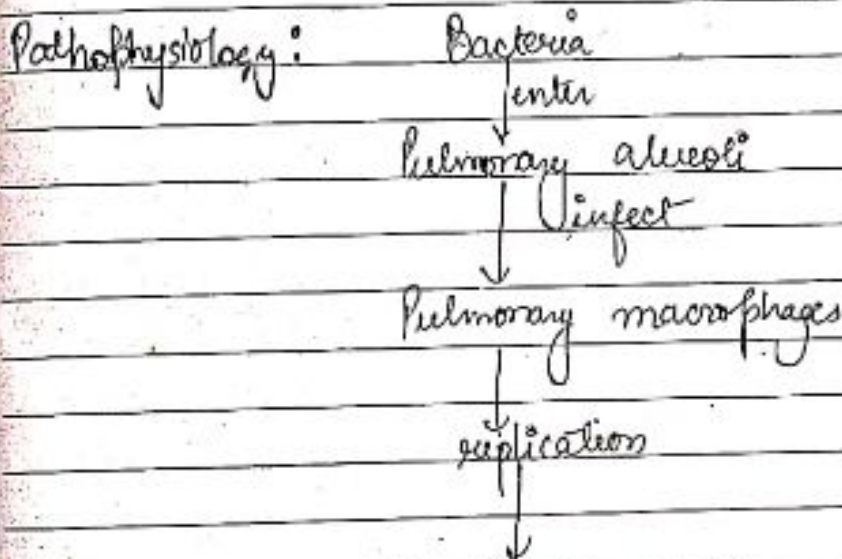 Pathophysiology: Bacteria
enter
Pulmonary alveoli
infect
Pulmonary macrophages
replication